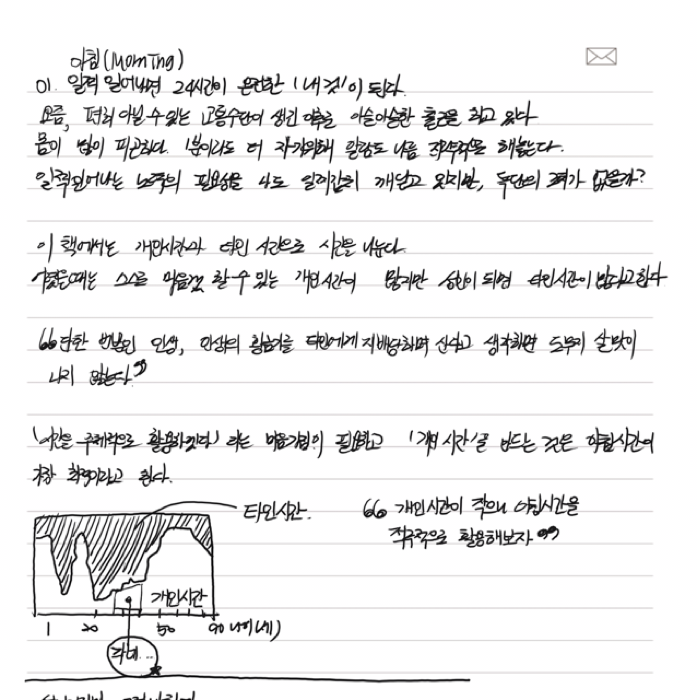 아침(Morning)
01. 일찍 일어나면 24시간이 온전한 '내 것'이 된다.
요즘, 편히 아닐 수 있는 교통수단이 생긴 이후로 아슬아슬한 출근을 하고 있다
몸이 많이 피곤하다. 1분이라도 더 자기위해 알람도 나름 최적으로 해놨는다.
일찍일어나는 노력의 필요성을 나도 일찌감치 깨닫고 있지만, 독단의 가 없을까?
이 책에서는 개인시간과 타인 시간으로 시간을 나눈다.
어렸을때는 스스로 마음껏 할 수 있는 개인시간이 많지만 성인이 되면 타인시간이 많다고 한다
"단 한 번뿐인 인생, 인생의 황금기를 타인에게 지배당하며 산다고 생각하면 도무지 살 맛이
나지 않는다."
'시간을 주체적으로 활용하겠다' 라는 마음가짐이 필요하고 '개인 시간'을 만드는 것은 아침시간이
가장 최적이라고 한다.
타인시간.
"개인시간이 적으니 아침시간을
적극적으로 활용해보자"
개인시간
1 20 50 90 나이(세)